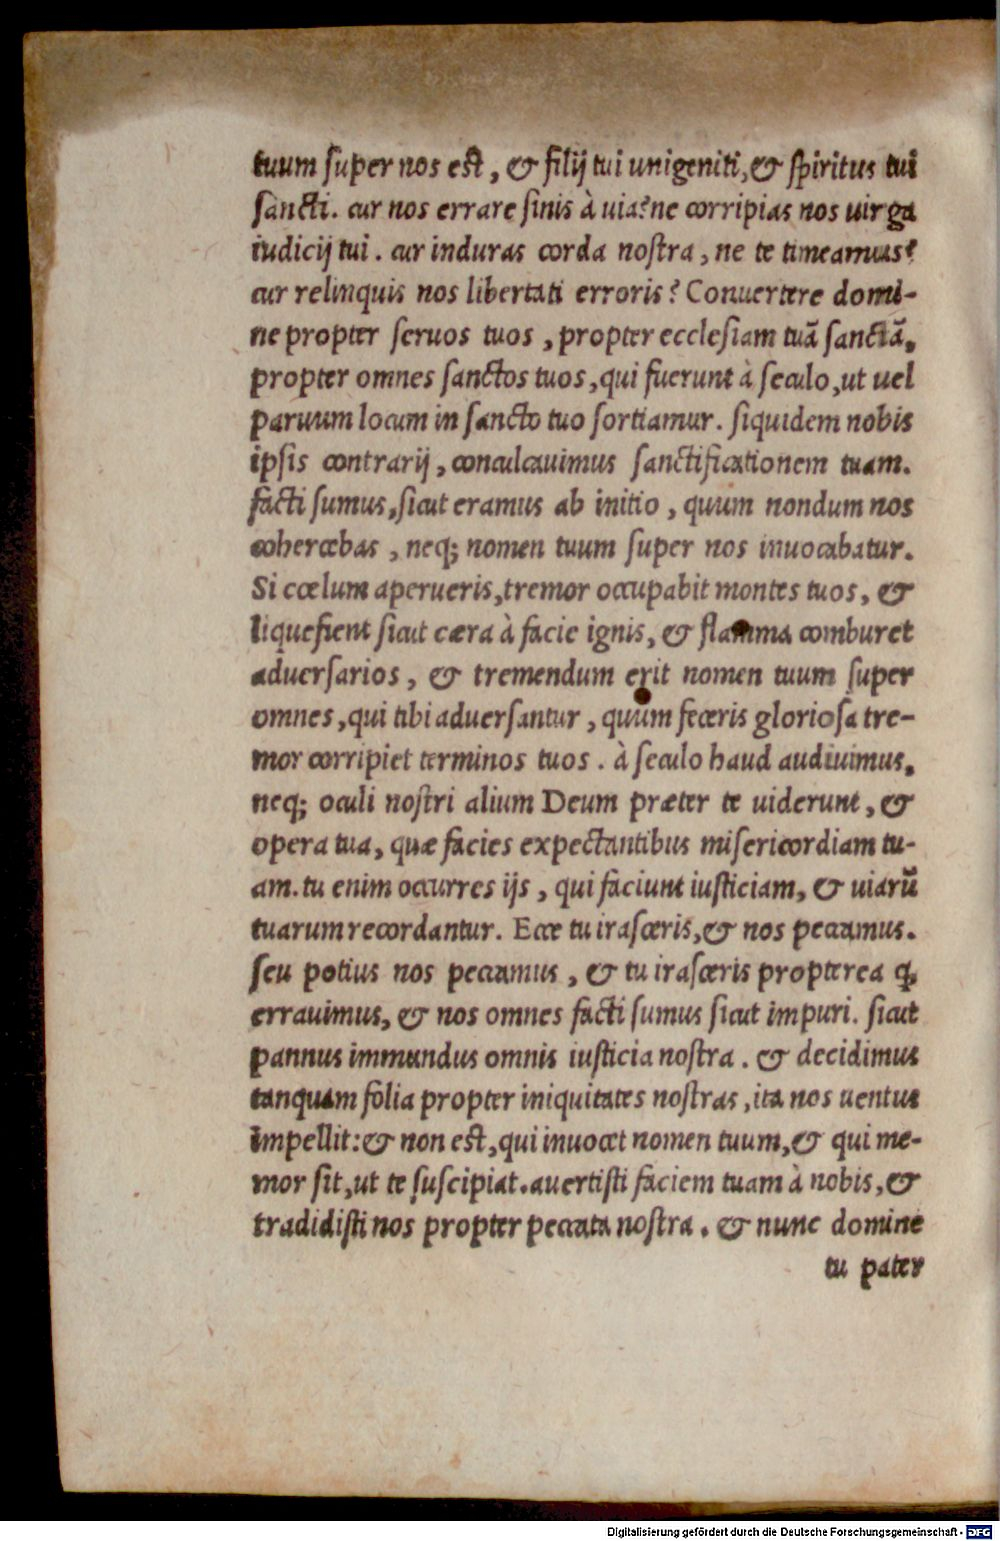 tuum super nos est, & filij tui unigeniti, & spiritus tui
sancti. cur nos errare sinis à uia? ne corripias nos uirga
iudicij tui. cur induras corda nostra, ne te timeamus?
cur relinquis nos libertati erroris? Conuertere domi-
ne propter seruos tuos, propter ecclesiam tuã sanctã,
propter omnes sanctos tuos, qui fuerunt à seculo, ut uel
paruum locum in sancto tuo sortiamur. siquidem nobis
ipsis contrarij, conculcauimus sanctificationem tuam.
facti sumus, sicut eramus ab initio, quum nondum nos
coherœbas, neq; nomen tuum super nos inuocabatur.
Si cœlum aperueris, tremor occupabit montes tuos, &
liquefient sicut cæra à facie ignis, & flamma comburet
aduersarios, & tremendum erit nomen tuum super
omnes, qui tibi aduersantur, quum feceris gloriosa tre-
mor corripiet terminos tuos. à seculo haud audiuimus,
neq; oculi nostri alium Deum præter te uiderunt, &
opera tua, quæ facies expectantibus misericordiam tu-
am. tu enim occurres ijs, qui faciunt iusticiam, & uiarũ
tuarum recordantur. Ecce tu irasceris, & nos peccamus.
seu potius nos peccamus, & tu irasceris propterea ꝙ
errauimus, & nos omnes facti sumus sicut impuri. sicut
pannus immundus omnis iusticia nostra. & decidimus
tanquam folia propter iniquitates nostras, ita nos uentus
impellit: & non est, qui inuocet nomen tuum, & qui me-
mor sit, ut te suscipiat. auertisti faciem tuam à nobis, &
tradidisti nos propter peccata nostra. & nunc domine
tu pater
Digitalisierung gefördert durch die Deutsche Forschungsgemeinschaft - DFG